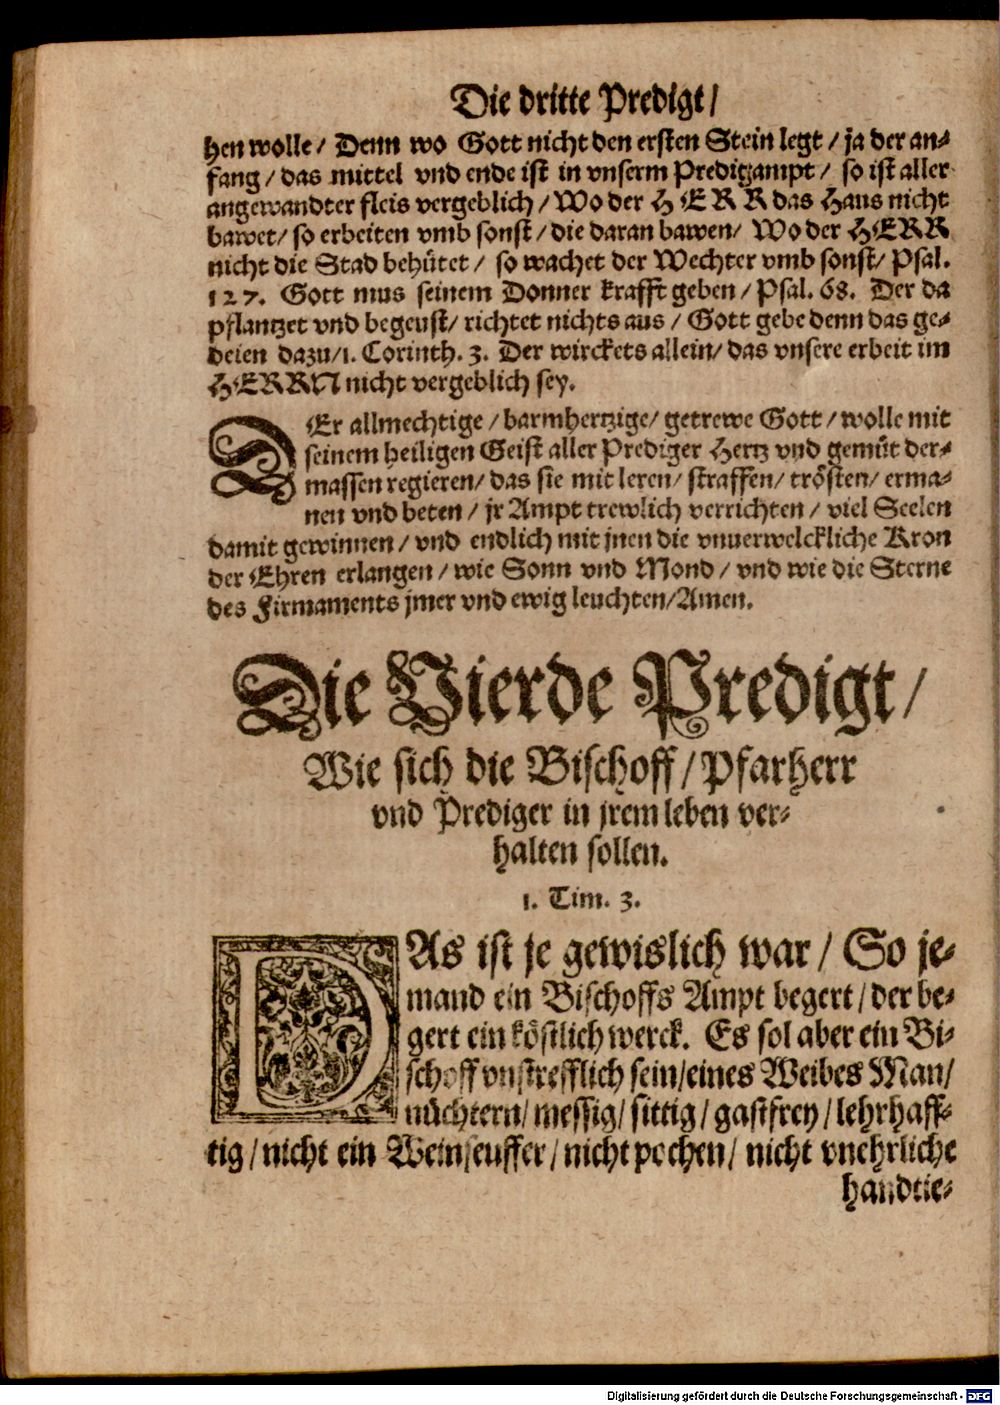 Die dritte Predigt/
hen wolle/ Denn wo Gott nicht den ersten Stein legt/ ja der an-
fang/ das mittel vnd ende ist in vnserm Predigampt/ so ist aller
angewandter fleis vergeblich/ Wo der HERR das Haus nicht
bawet/ so erbeiten vmb sonst/ die daran bawen/ Wo der HERR
nicht die Stad behütet/ so wachet der Wechter vmb sonst/ Psal.
127. Gott mus seinem Donner krafft geben/ Psal. 68. Der da
pflantzet vnd begeust/ richtet nichts aus/ Gott gebe denn das ge-
deien dazu/ 1. Corinth. 3. Der wirckets allein/ das vnsere erbeit im
HERRN nicht vergeblich sey.
DEr allmechtige/ barmhertzige/ getrewe Gott/ wolle mit
seinem heiligen Geist aller Prediger Hertz vnd gemüt der-
massen regieren/ das sie mit leren/ straffen/ trösten/ erma-
nen vnd beten/ jr Ampt trewlich verrichten/ viel Seelen
damit gewinnen/ vnd endlich mit jnen die vnuerwelckliche Kron
der Ehren erlangen/ wie Sonn vnd Mond/ vnd wie die Sterne
des Firmaments jmer vnd ewig leuchten/ Amen.
Die Vierde Predigt/
Wie sich die Bischoff/ Pfarherr
vnd Prediger in jrem leben ver-
halten sollen.
1. Tim. 3.
DAs ist je gewislich war/ So je-
mand ein Bischoffs Ampt begert/ der be-
gert ein köstlich werck. Es sol aber ein Bi-
schoff vnstrefflich sein/ eines Weibes Man/
nüchtern/ messig/ sittig/ gastfrey/ lehrhaff-
tig/ nicht ein Weinseuffer/ nicht pochen/ nicht vnehrliche
handtie-
Digitalisierung gefördert durch die Deutsche Forschungsgemeinschaft - DFG